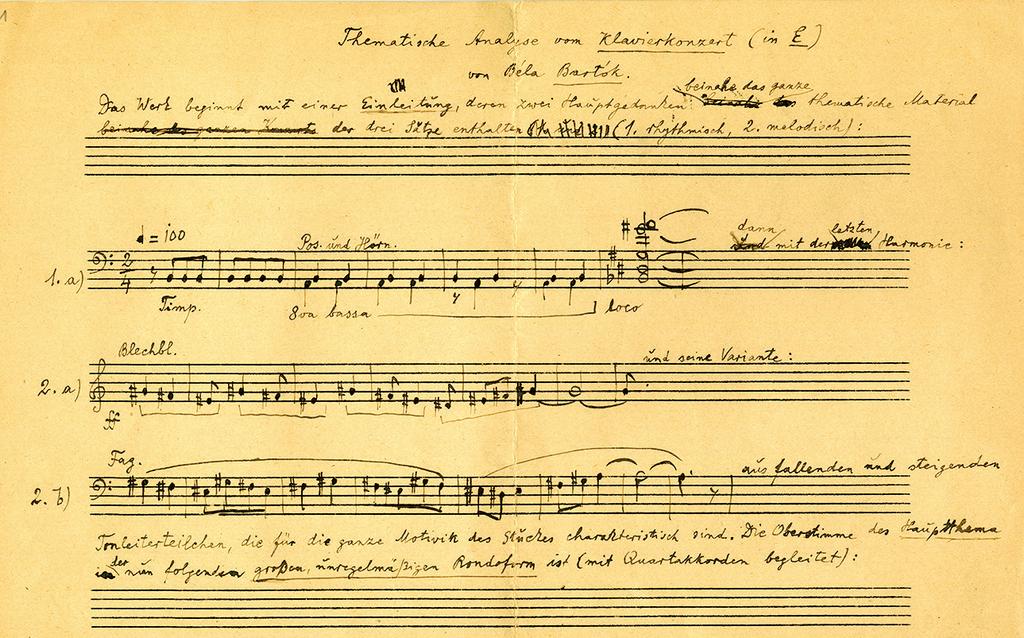 1
Thematische Analyse vom Klavierkonzert (in E)
von Béla Bartók.
beinahe das ganze
Das Werk beginnt mit einer Einleitung, deren zwei Hauptgedanken thematische Material
der drei Sätze enthalten (1. rhythmisch, 2. melodisch):
♩ = 100
Pos. und Hörn.
dann letzten
mit der Harmonie:
1. a)
2/4
Timp.
8va bassa
loco
Blechbl.
und seine Variante:
2. a)
ff
Fag.
aus fallenden und steigenden
2. b)
Tonleiterteilchen, die für die ganze Motivik des Stückes charakteristisch sind. Die Oberstimme des Hauptthema
der nun folgenden großen, unregelmäßigen Rondoform ist (mit Quartakkorden begleitet):